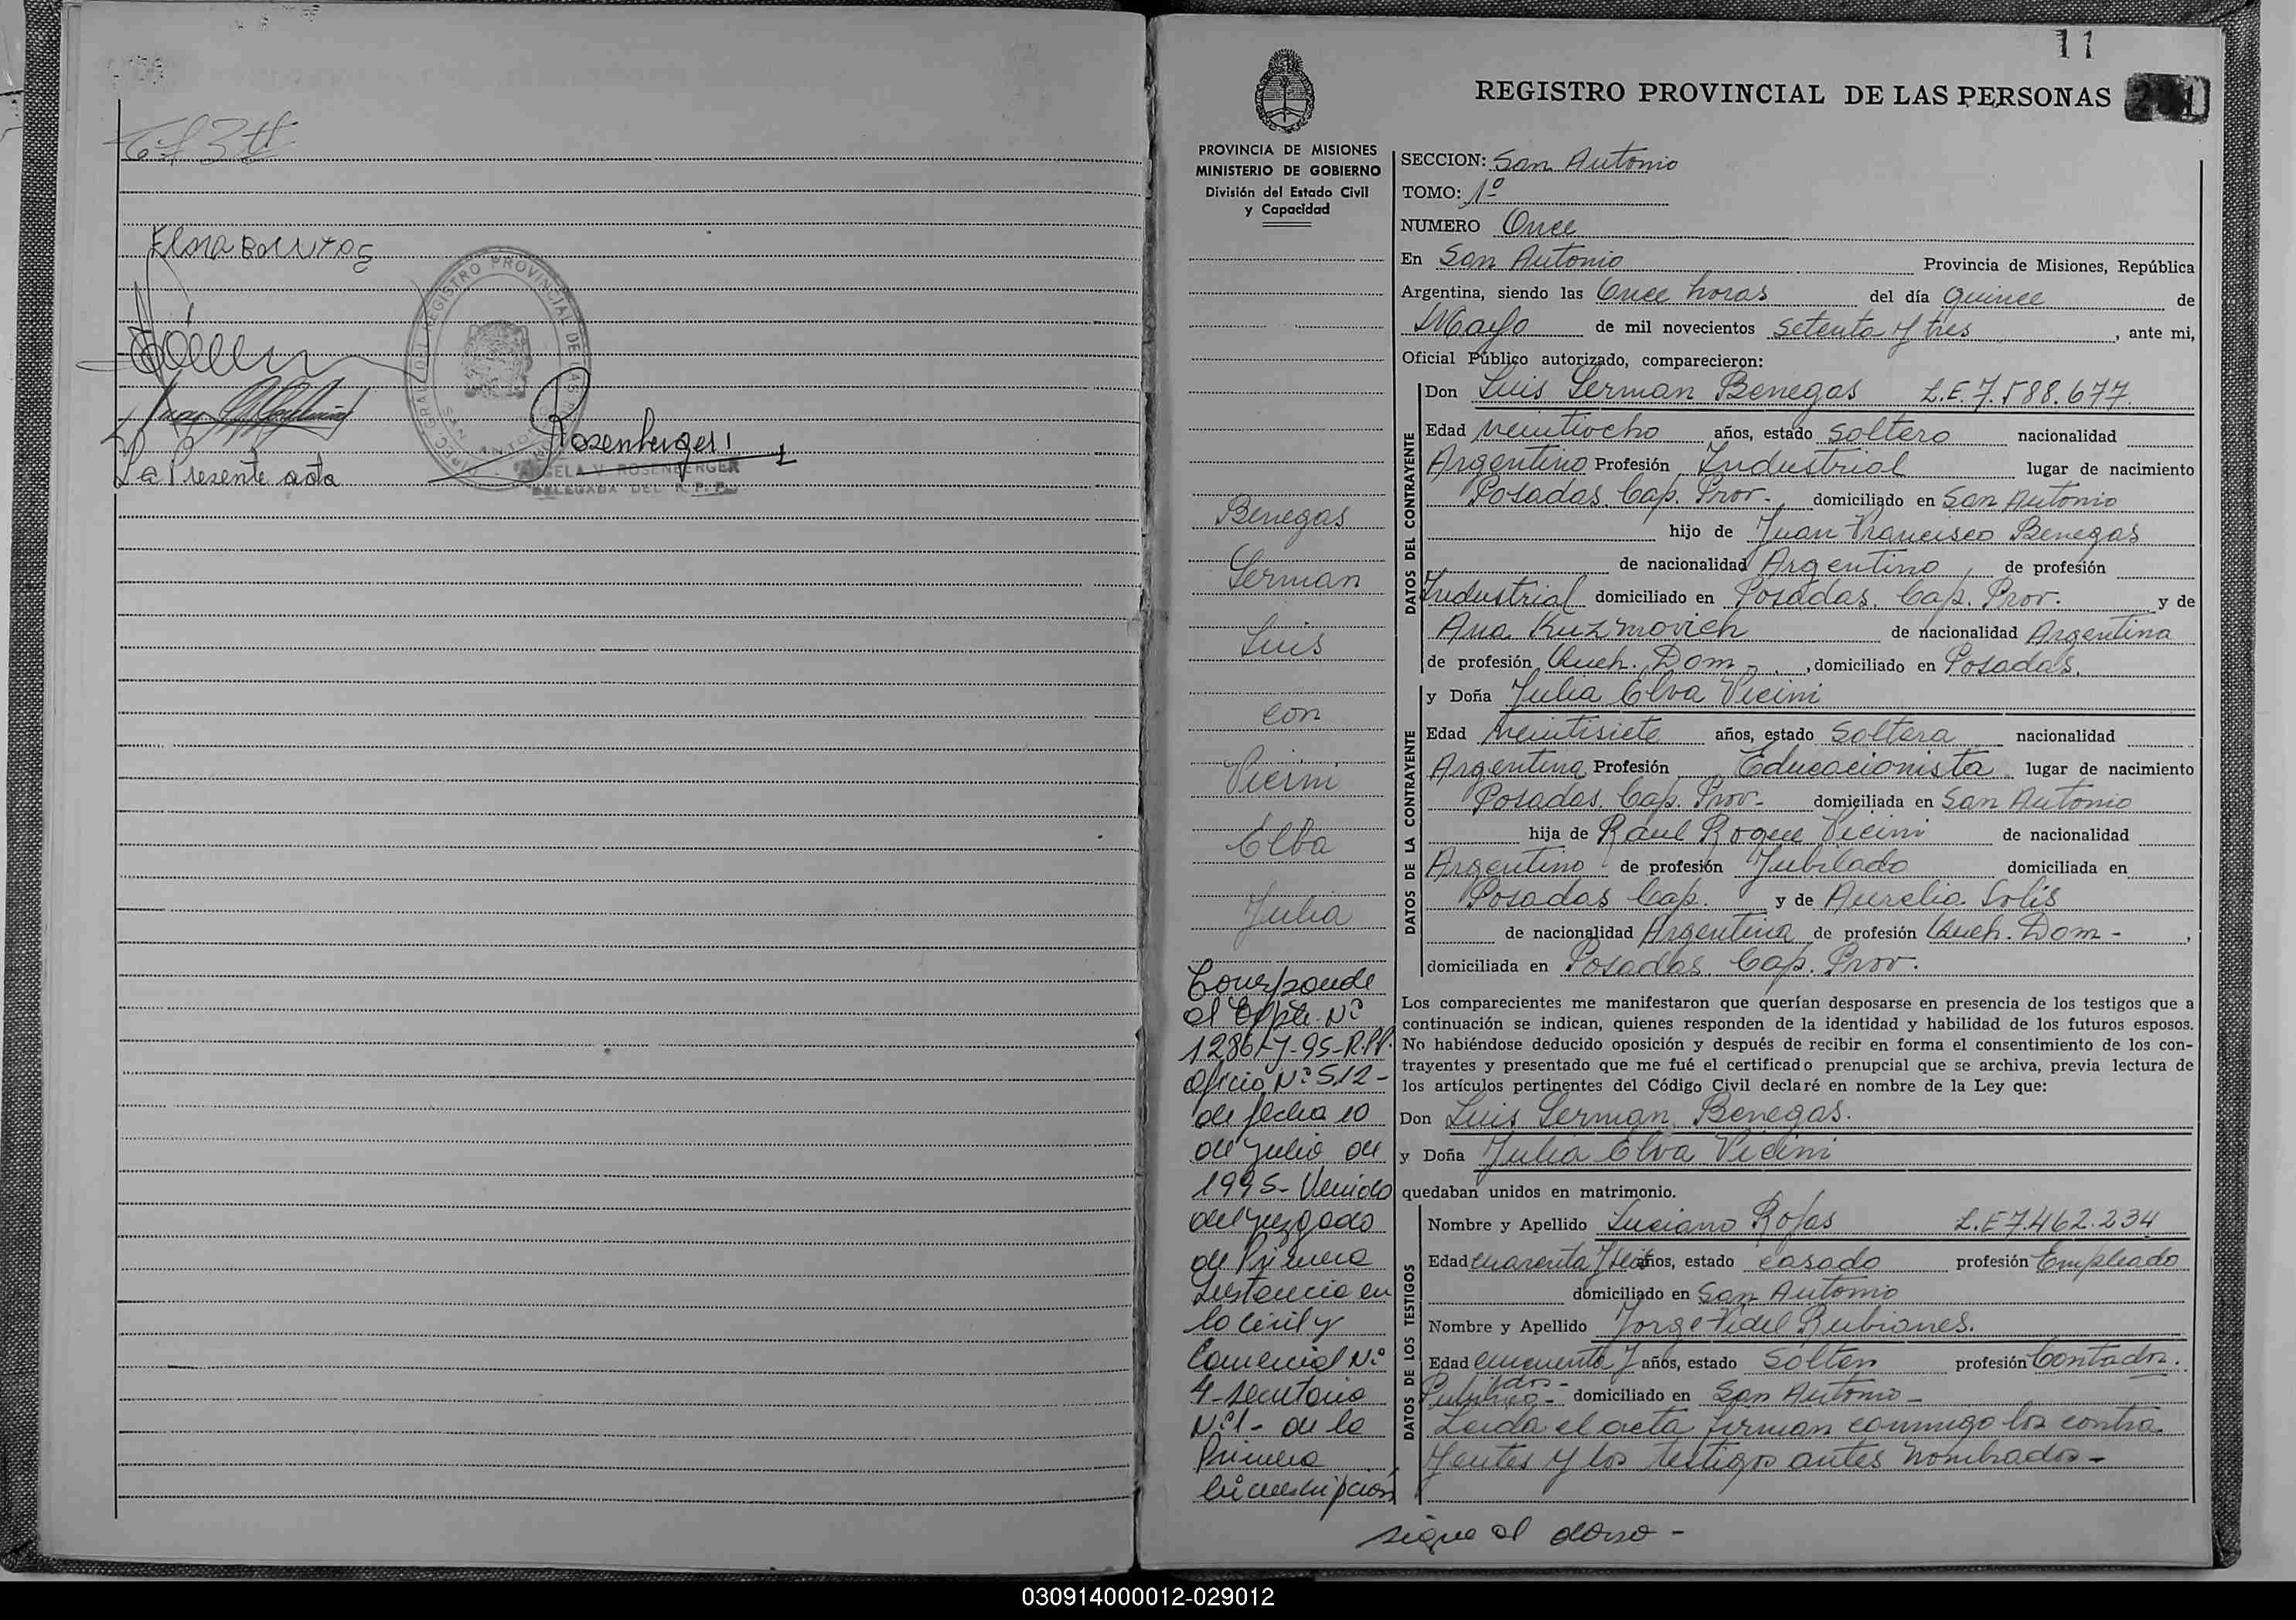 Elsa
REGISTRO PROVINCIAL DE LAS
Rosenberger
ANGELA V. ROSENBERGER
DELEGADA DEL R. P. P.
La Presente acta
11
REGISTRO PROVINCIAL DE LAS PERSONAS
PROVINCIA DE MISIONES
MINISTERIO DE GOBIERNO
División del Estado Civil
y Capacidad
Benegas
German
Luis
con
Vicini
Elba
Julia
Corresponde
al Expte. Nº
1286-J-95-R.P.P.
Oficio Nº 512-
de fecha 10
de Julio de
1995- Venido
del Juzgado
de Primera
Instancia en
lo Civil y
Comercial Nº
4-Secretaria
Nº1- de la
Primera
Circunscripción
SECCION: San Antonio
TOMO: 1º
NUMERO Once
En San Antonio Provincia de Misiones, República
Argentina, siendo las Once horas del día quince de
Mayo de mil novecientos setenta y tres, ante mi,
Oficial Público autorizado, comparecieron:
DATOS DEL CONTRAYENTE
Don Luis German Benegas L.E.7.588.677
Edad veintiocho años, estado soltero nacionalidad
Argentino Profesión Industrial lugar de nacimiento
Posadas. Cap. Prov. domiciliado en San Antonio
hijo de Juan Francisco Benegas
de nacionalidad Argentino, de profesión
Industrial domiciliado en Posadas. Cap. Prov. y de
Ana Kuzmovich de nacionalidad Argentina
de profesión Queh. Dom-, domiciliado en Posadas.
DATOS DE LA CONTRAYENTE
y Doña Julia Elva Vicini
Edad veintisiete años, estado Soltera nacionalidad
Argentina Profesión Educacionista lugar de nacimiento
Posadas. Cap. Prov- domiciliada en San Antonio
hija de Raul Roque Vicini de nacionalidad
Argentino de profesión Jubilado domiciliada en
Posadas Cap. y de Aurelia Solis
de nacionalidad Argentina de profesión Queh. Dom-,
domiciliada en Posadas Cap. Prov.
Los comparecientes me manifestaron que querían desposarse en presencia de los testigos que a
continuación se indican, quienes responden de la identidad y habilidad de los futuros esposos.
No habiéndose deducido oposición y después de recibir en forma el consentimiento de los con-
trayentes y presentado que me fué el certificado prenupcial que se archiva, previa lectura de
los artículos pertinentes del Código Civil declaré en nombre de la Ley que:
Don Luis German Benegas.
y Doña Julia Elva Vicini
quedaban unidos en matrimonio.
DATOS DE LOS TESTIGOS
Nombre y Apellido Luciano Rojas L.E7.462.234
Edad cuarenta y seis años, estado casado profesión Empleado
domiciliado en San Antonio
Nombre y Apellido Jorge Fidel Rubiones.
Edad cincuenta y años, estado Solten profesión Contador.
dos-
Publico- domiciliado en San Antonio-
Leida el acta firman conmigo los contra
yentes y los testigos antes nombrados-
sigue al dorso-
030914000012-029012